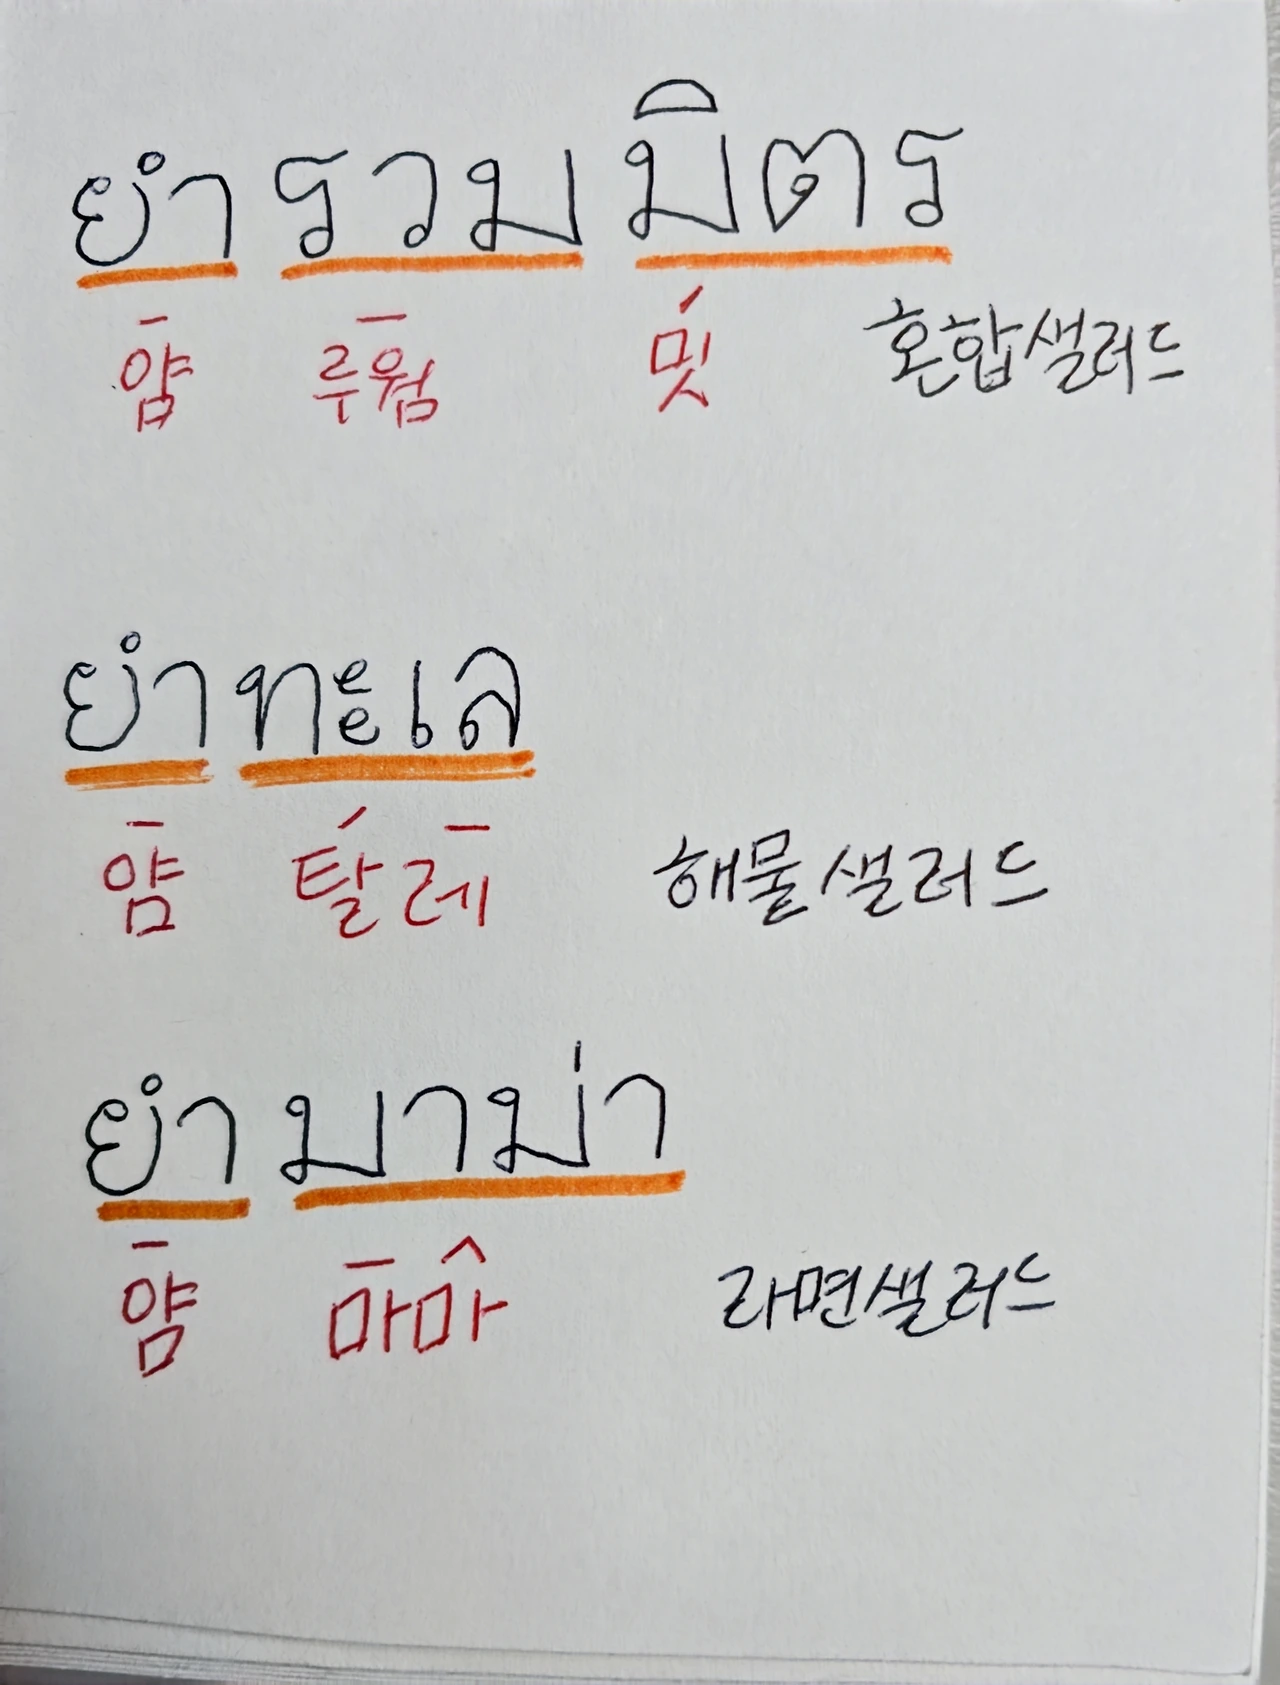 ยำ รวม มิตร
얌 루웜 밋 혼합샐러드
ยำ ทะเล
얌 탈레 해물샐러드
ยำ มาม่า
얌 마마 라면샐러드